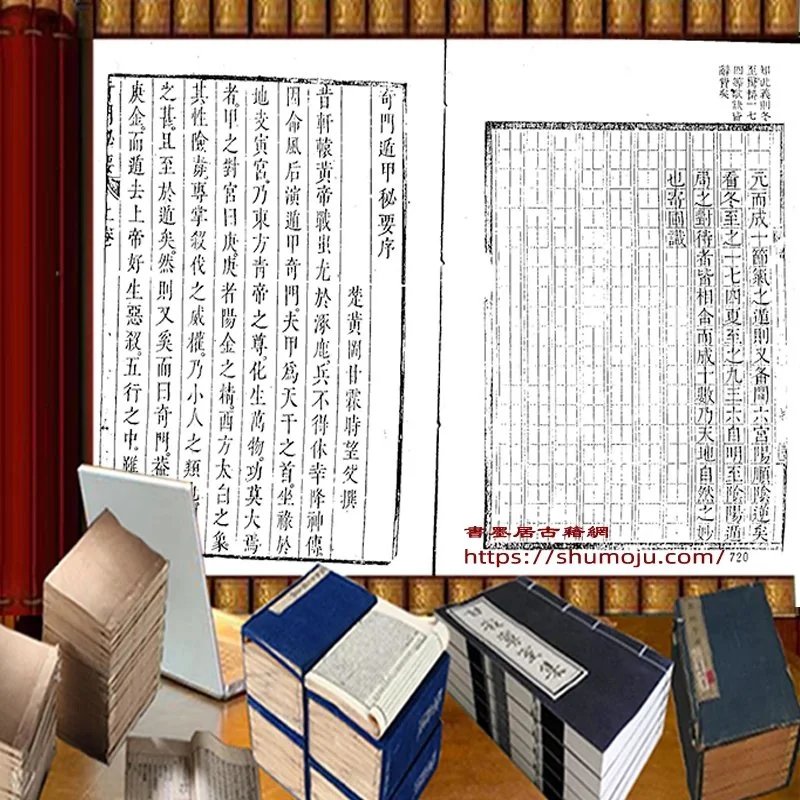 知此義則冬
至驚蟄一七
四等歌訣皆
辭費矣
元而成一節氣之遁則又备閲六宮陽順陰逆矣
看冬至之一七四夏至之九三六自明至陰陽遁
局之對待者皆相合而成十數乃天地自然之妙
720
奇門遁甲秘要序
楚黃岡甘霖時望父撰
昔軒轅黃帝戰蚩尤於涿鹿兵不得休幸降神傳
因命風后演遁甲奇門。夫甲爲天干之首。坐祿於
地支寅宮。乃東方青帝之尊。化生萬物。功莫大焉
者。甲之對宮曰庚。庚者陽金之精。西方太白之象
其性險毒專掌殺伐之威權。乃小人之類
之甚。且至於遁矣。然則又奚而曰奇門。葢
庚金。而遁去上帝好生惡殺。五行之中。雖
書墨居古籍網
https://shumoju.com/